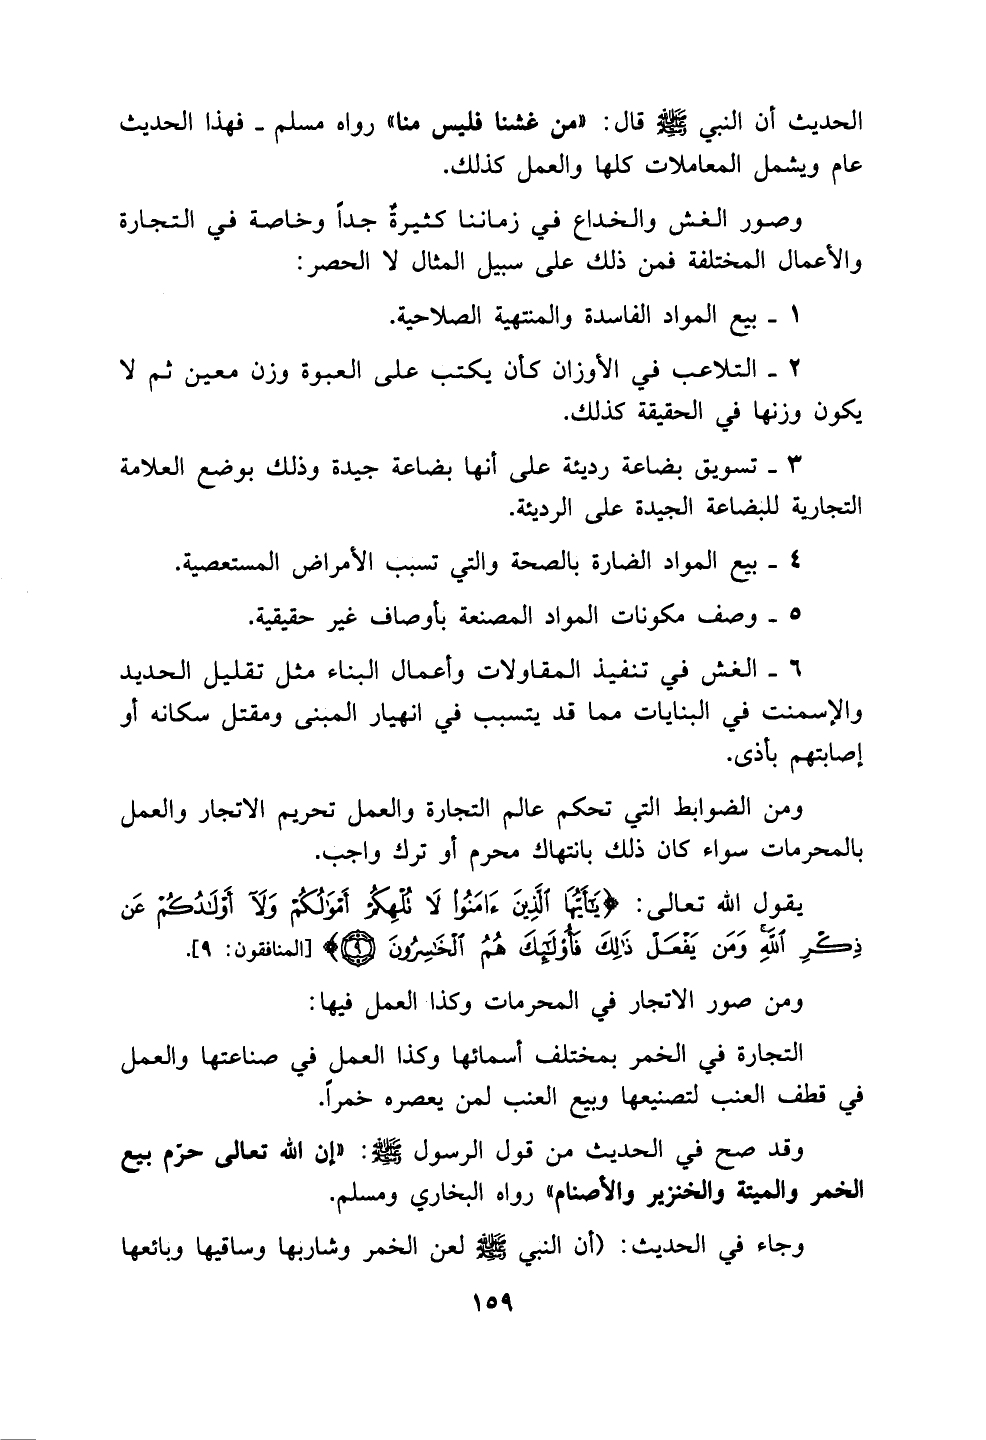 الحديث أن النبي ﷺ قال: «من غشنا فليس منا» رواه مسلم ـ فهذا الحديث
عام ويشمل المعاملات كلها والعمل كذلك.
وصور الغش والخداع في زماننا كثيرةٌ جداً وخاصة في التجارة
والأعمال المختلفة فمن ذلك على سبيل المثال لا الحصر:
١ ـ بيع المواد الفاسدة والمنتهية الصلاحية.
٢ ـ التلاعب في الأوزان كأن يكتب على العبوة وزن معين ثم لا
يكون وزنها في الحقيقة كذلك.
٣ ـ تسويق بضاعة رديئة على أنها بضاعة جيدة وذلك بوضع العلامة
التجارية للبضاعة الجيدة على الرديئة.
٤ ـ بيع المواد الضارة بالصحة والتي تسبب الأمراض المستعصية.
٥ ـ وصف مكونات المواد المصنعة بأوصاف غير حقيقية.
٦ ـ الغش في تنفيذ المقاولات وأعمال البناء مثل تقليل الحديد
والإسمنت في البنايات مما قد يتسبب في انهيار المبنى ومقتل سكانه أو
إصابتهم بأذى.
ومن الضوابط التي تحكم عالم التجارة والعمل تحريم الاتجار والعمل
بالمحرمات سواء كان ذلك بانتهاك محرم أو ترك واجب.
يقول الله تعالى: ﴿يَٰٓأَيُّهَا ٱلَّذِينَ ءَامَنُوا۟ لَا تُلْهِكُمْ أَمْوَٰلُكُمْ وَلَآ أَوْلَٰدُكُمْ عَن
ذِكْرِ ٱللَّهِ ۚ وَمَن يَفْعَلْ ذَٰلِكَ فَأُو۟لَٰٓئِكَ هُمُ ٱلْخَٰسِرُونَ ٩﴾ [المنافقون: ٩].
ومن صور الاتجار في المحرمات وكذا العمل فيها:
التجارة في الخمر بمختلف أسمائها وكذا العمل في صناعتها والعمل
في قطف العنب لتصنيعها وبيع العنب لمن يعصره خمراً.
وقد صح في الحديث من قول الرسول ﷺ: «إن الله تعالى حرّم بيع
الخمر والميتة والخنزير والأصنام» رواه البخاري ومسلم.
وجاء في الحديث: (أن النبي ﷺ لعن الخمر وشاربها وساقيها وبائعها
١٥٩